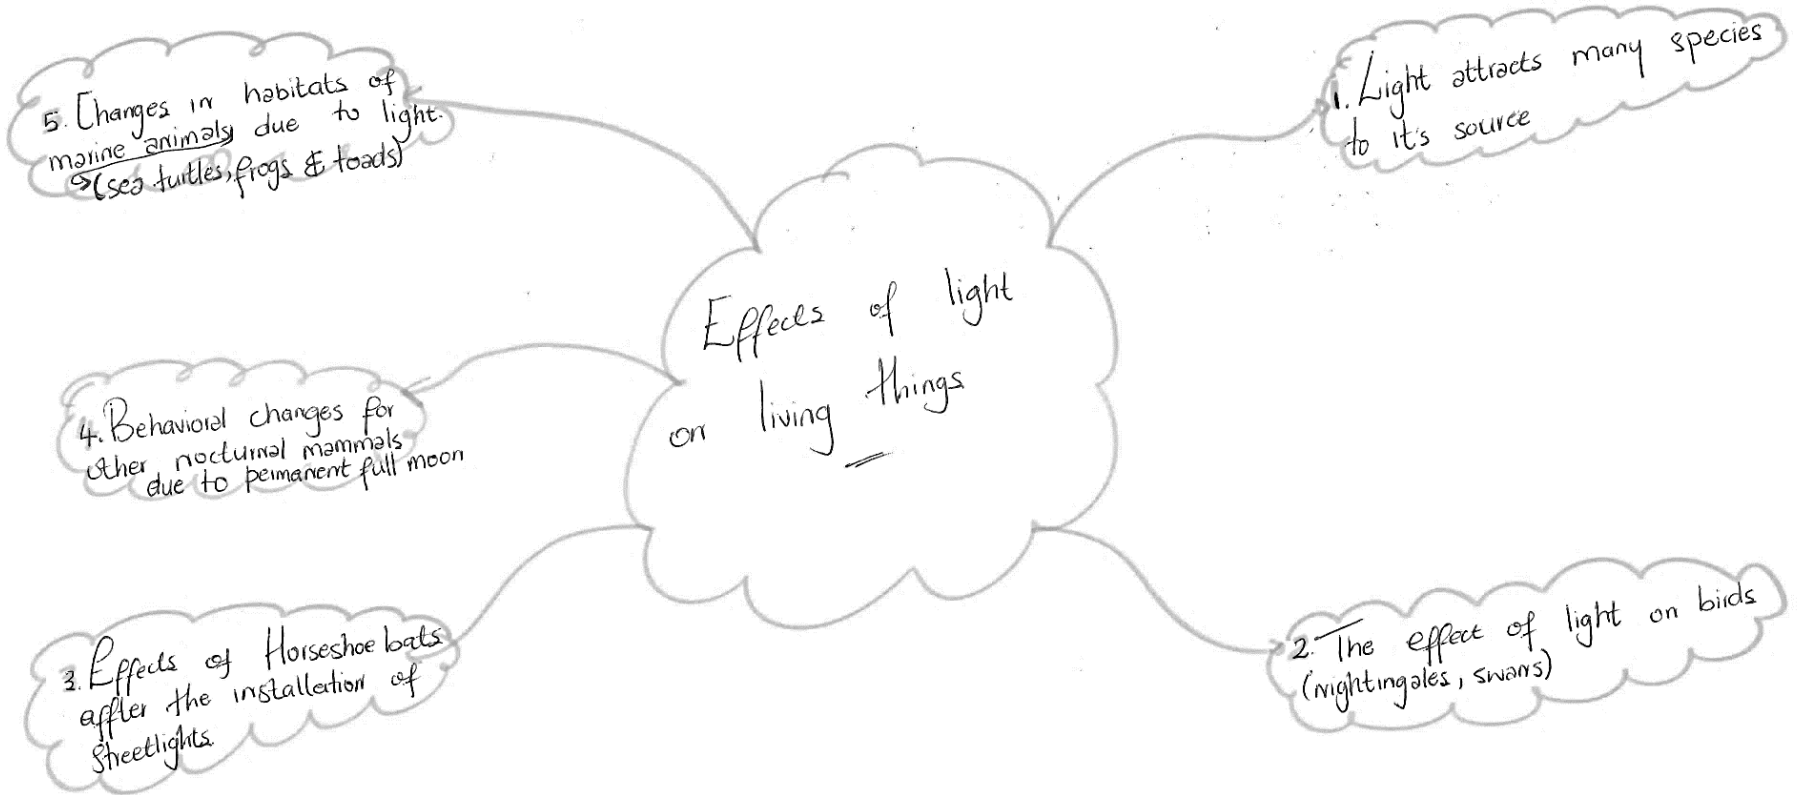 Effects of light
on living things
1. Light attracts many species
to it's source
2. The effect of light on birds
(nightingales, swans)
3. Effects of Horseshoe bats
affter the installation of
streetlights.
4. Behavioral changes for
other nocturnal mammals
due to permanent full moon
5. Changes in habitats of
marine animals due to light.
(sea turtles, frogs & toads)